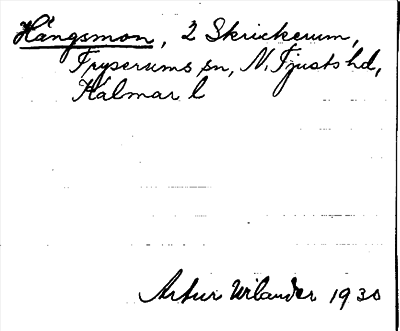 Hängsmon, 2 Skrickerum,
Fryserums sn, N. Tjusts hd,
Kalmar l
Artur Wilander 1930